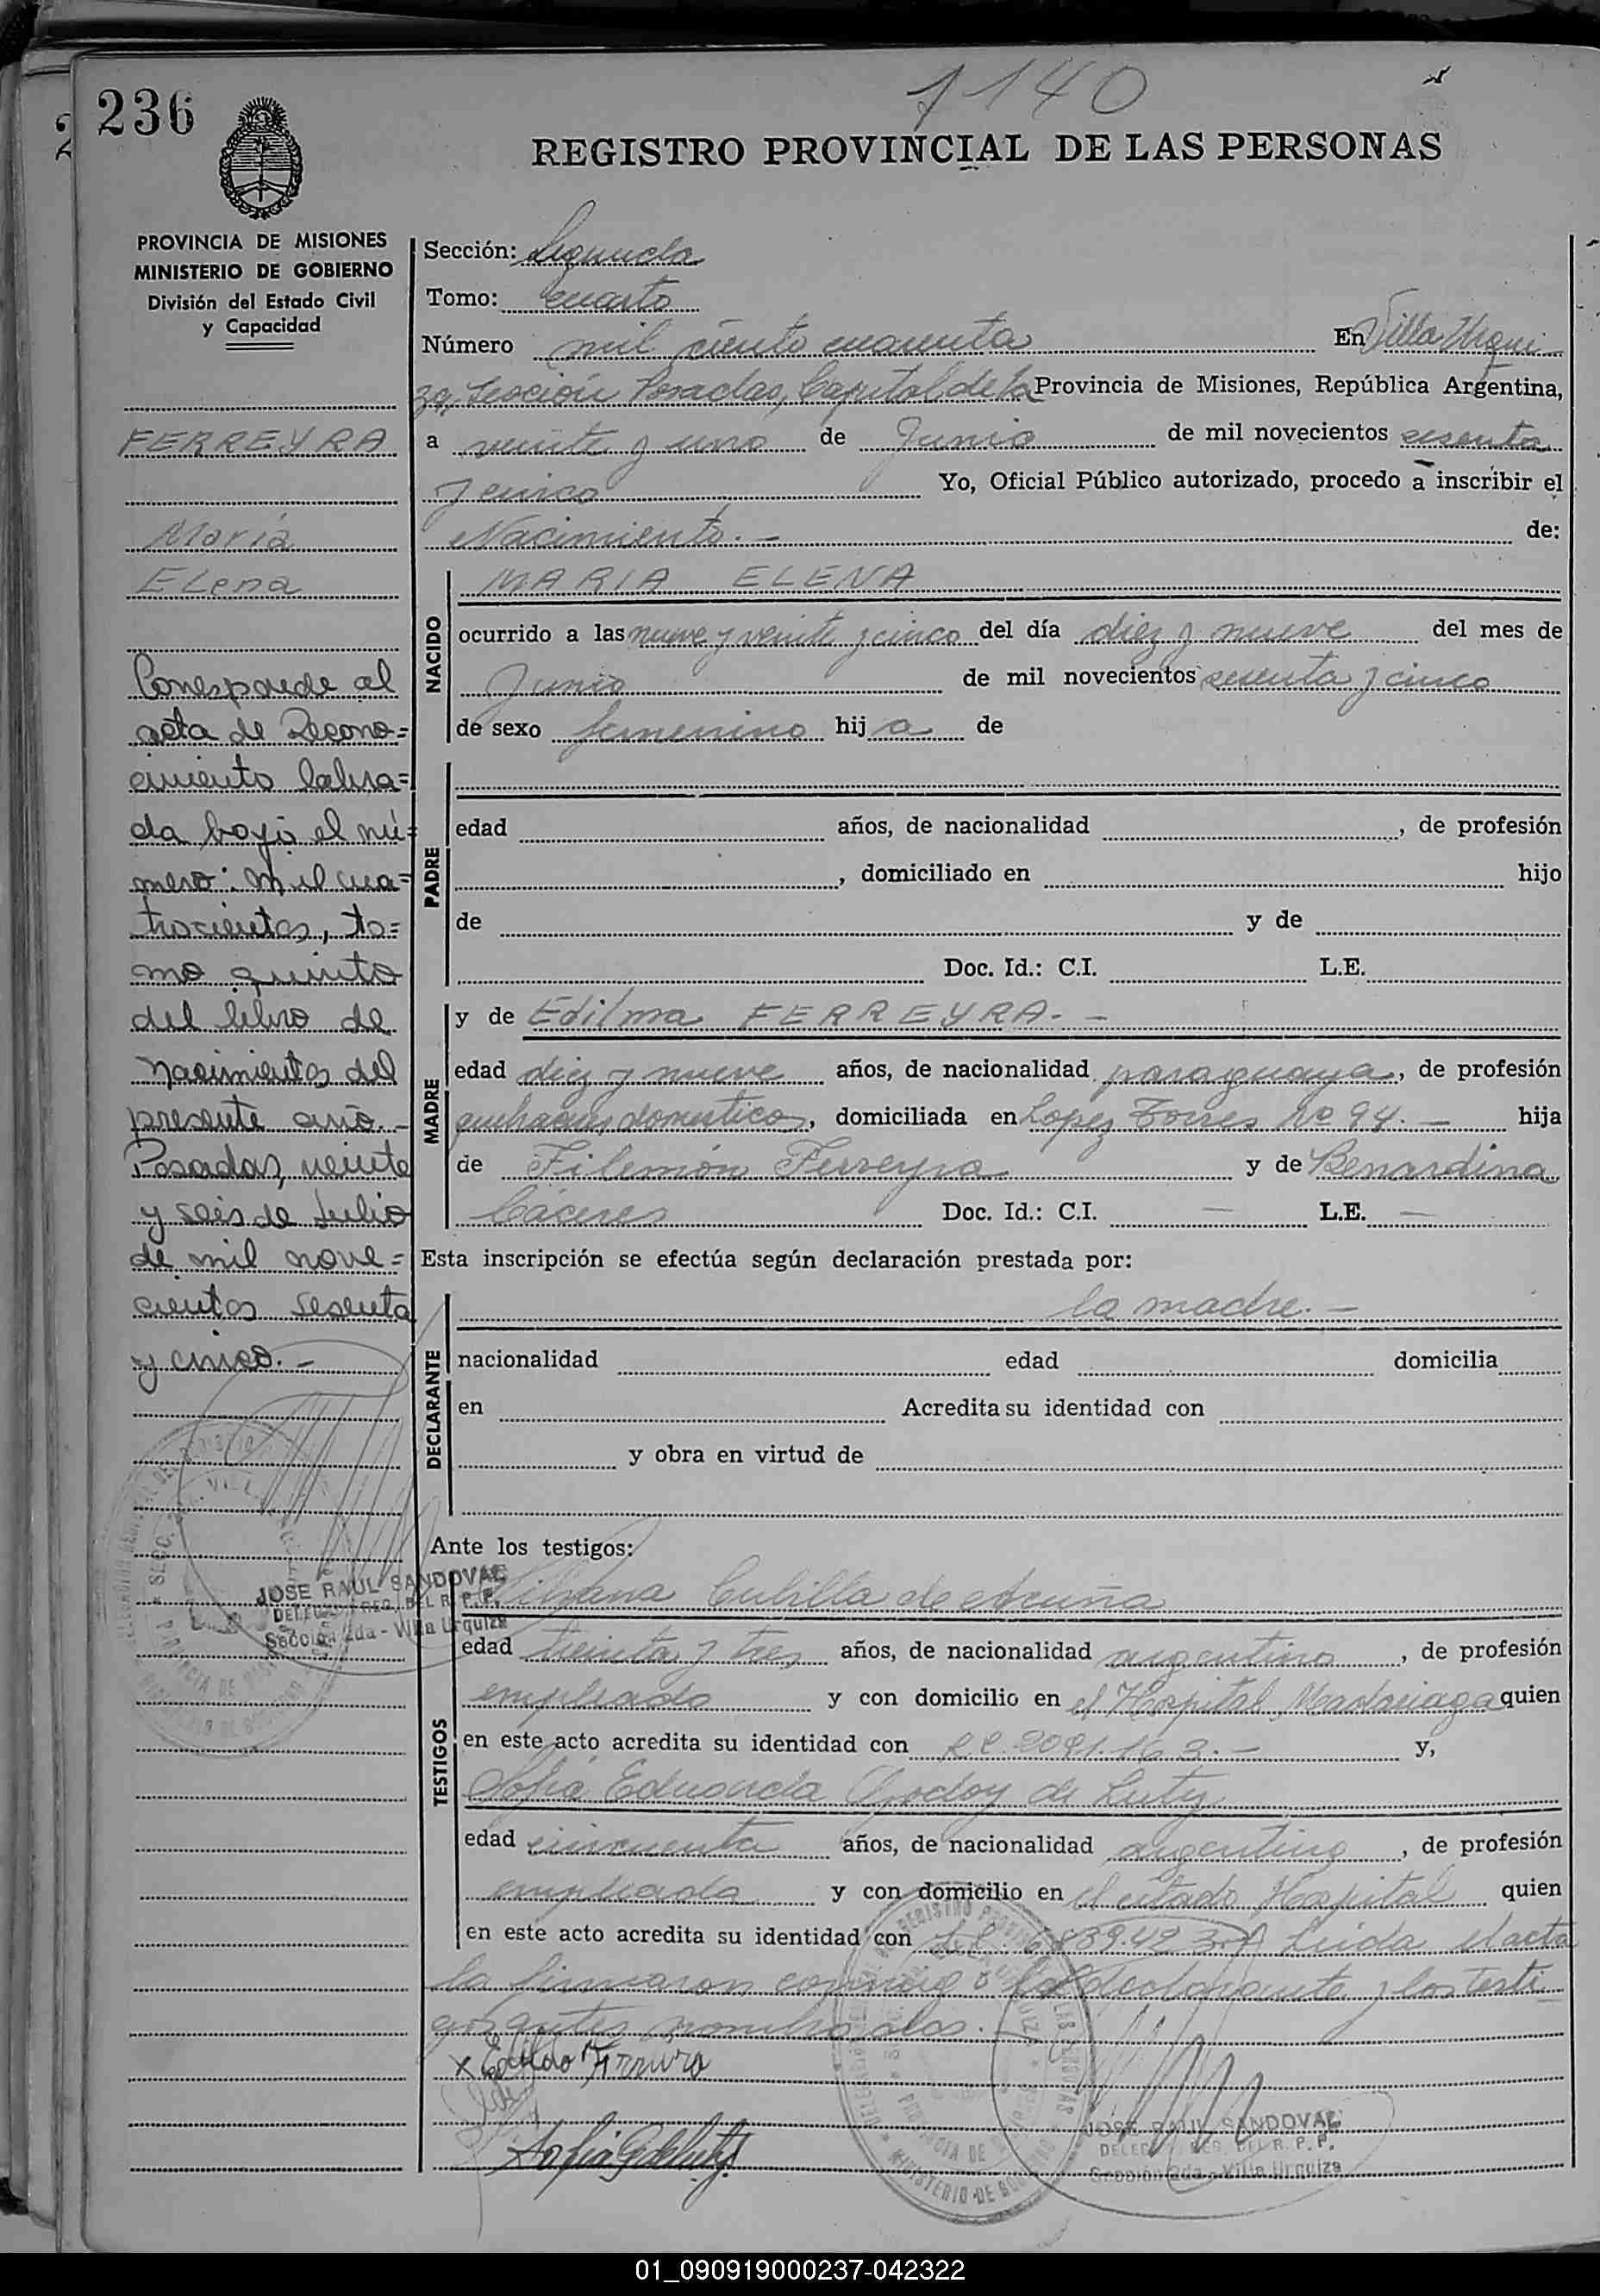 1140
236
REGISTRO PROVINCIAL DE LAS PERSONAS
PROVINCIA DE MISIONES
MINISTERIO DE GOBIERNO
División del Estado Civil
y Capacidad
FERREYRA
María
Elena
Corresponde al
acta de Recono=
cimiento labra=
da bajo el nú=
mero: mil cua=
trocientos, to=
mo quinto
del libro de
Nacimientos del
presente año.-
Posadas, veinte
y seis de Julio
de mil nove=
cientos sesenta
y cinco.-
JOSE RAUL SANDOVAL
DELEG. REG. DEL R. P. P.
Sección 2da - Villa Urquiza
Sección: Segunda
Tomo: cuarto
Número mil ciento cuarenta En Villa Urqui
za, Sección Posadas, Capital de la Provincia de Misiones, República Argentina,
a veinte y uno de Junio de mil novecientos sesenta
y cinco Yo, Oficial Público autorizado, procedo a inscribir el
Nacimiento.- de:
NACIDO
MARIA ELENA
ocurrido a las nueve y veinte y cinco del día diez y nueve del mes de
Junio de mil novecientos sesenta y cinco
de sexo femenino hija de
PADRE
edad años, de nacionalidad , de profesión
, domiciliado en hijo
de y de
Doc. Id.: C.I. L.E.
MADRE
y de Edilma FERREYRA.-
edad diez y nueve años, de nacionalidad paraguaya, de profesión
quehaceres domestico, domiciliada en Lopez Torres No 94.- hija
de Filemón Ferreyra y de Benardina
Cáceres Doc. Id.: C.I. — L.E. —
Esta inscripción se efectúa según declaración prestada por:
DECLARANTE
la madre.-
nacionalidad edad domicilia
en Acredita su identidad con
y obra en virtud de
Ante los testigos:
TESTIGOS
Cubilla de Acuña
edad treinta y tres años, de nacionalidad argentina, de profesión
empleada y con domicilio en el Hospital Madariaga quien
en este acto acredita su identidad con y,
Sofia Eduarda Godoy de Lutz
edad cincuenta años, de nacionalidad argentina, de profesión
empleada y con domicilio en el citado Hospital quien
en este acto acredita su identidad con Leida el acta
la firmaron conmigo la declarante y los testi
gos antes nombrados.-
JOSE RAUL SANDOVAL
DELEG. REG. DEL R. P. P.
Sección 2da - Villa Urquiza
01_090919000237-042322